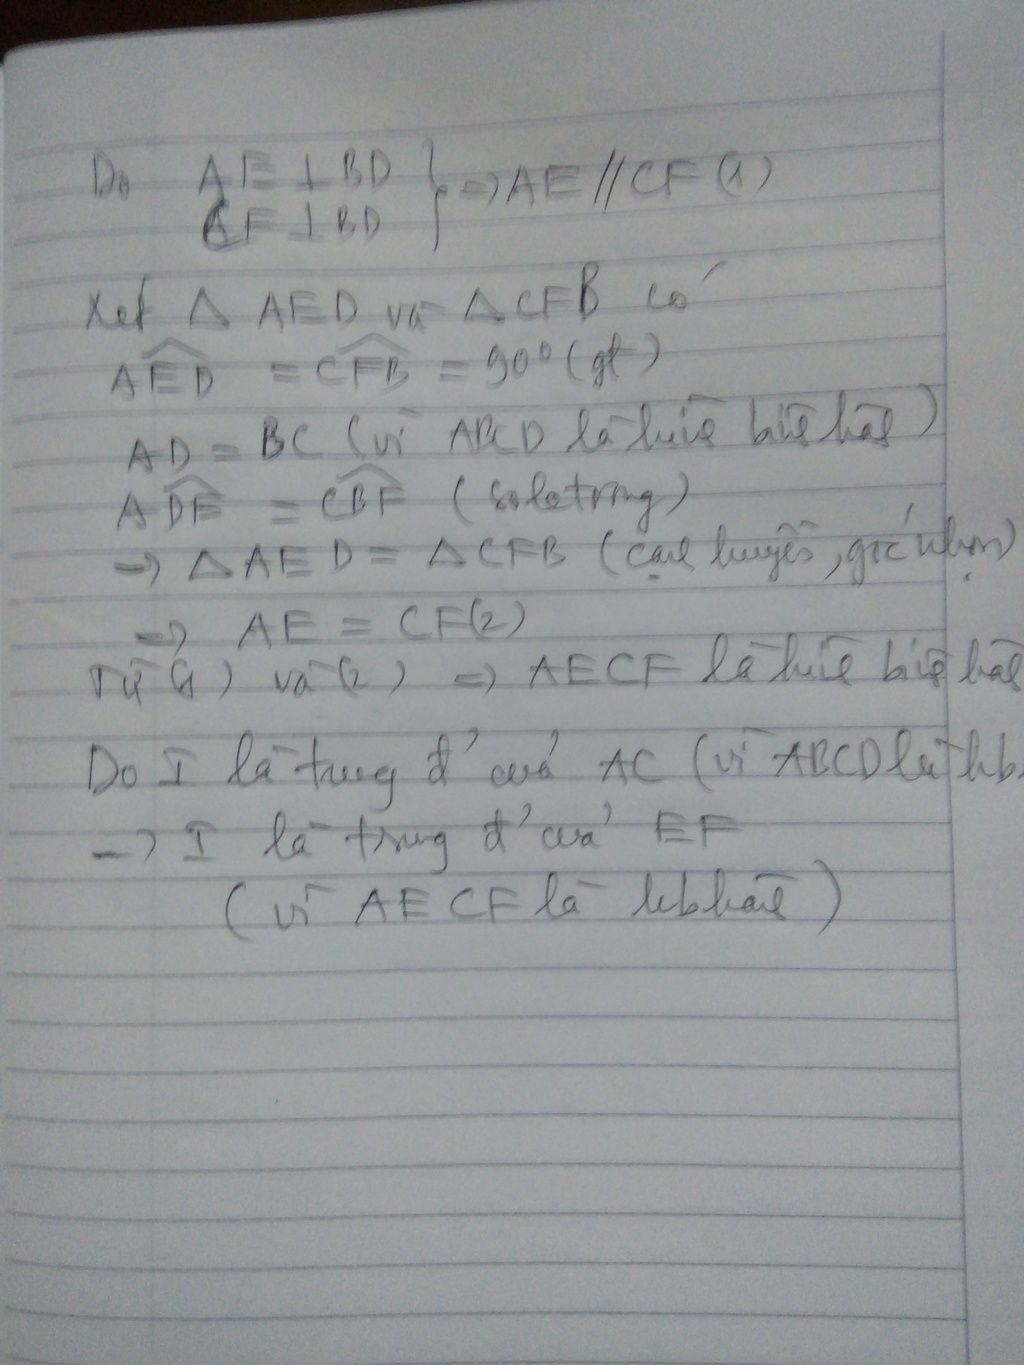 Do AE ⊥ BD } => AE // CF (1)
CF ⊥ BD
Xét △ AED và △ CFB có
AED = CFB = 90° (gt)
AD = BC (vì ABCD là hình bình hành)
ADE = CBF (so le trong)
=> △ AED = △ CFB (cạnh huyền, góc nhọn)
=> AE = CF (2)
Từ (1) và (2) => AECF là hình bình hành
Do I là trung đ' của AC (vì ABCD là hb
=> I là trung đ' của EF
(vì AECF là hbhành)